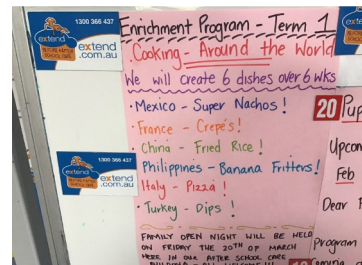 1300 366 437
extend
extend
.com.au
Enrichment Program - Term 1
Cooking - Around the World
We will create 6 dishes over 6 wks
• Mexico - Super Nachos!
• France - Crepe's!
• China - Fried Rice!
Philippines - Banana Fritters!
Italy - Pizza!
• Turkey - Dips!
FAMILY OPEN NIGHT WILL BE HELD
ON FRIDAY THE 20TH OF MARCH
HERE IN OUR AFTER SCHOOL CARE
1300 366 437
extend
extend
.com.au
20
Feb
Dear
Program